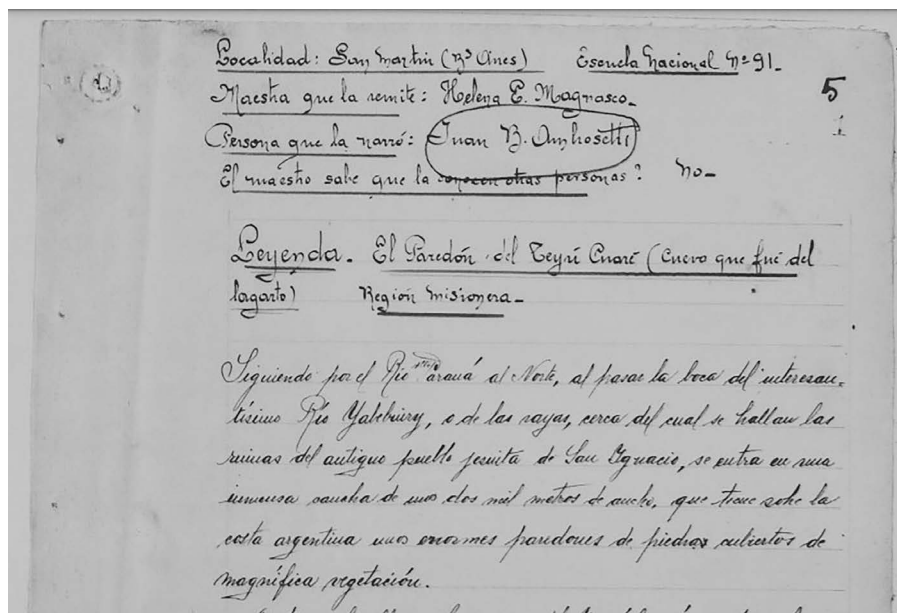 Localidad: San Martin (Bs Aires) Escuela Nacional Nº 91_
5
Maestra que la remite: Helena E. Magnasco_
1
Persona que la narró: Juan B. Ambosetti
El maestro sabe que la conocen otras personas? No_
Leyenda. El Paredón del Teyú Cuaré (Cuevo que fué del
lagarto) Región misionera_
Siguiendo por el Río Paraná al Norte, al pasar la boca del interesan-
tísimo Río Yabebuiry, o de las rayas, cerca del cual se hallan las
ruinas del antiguo pueblo jesuita de San Ignacio, se entra en una
inmensa cancha de unos dos mil metros de ancho, que tiene sobre la
costa argentina unos enormes paredones de piedras cubiertos de
magnífica vegetación.